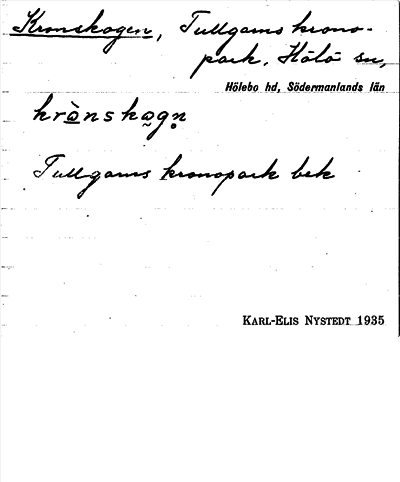 Kronskogen, Tullgarns krono-
park, Hölö sn,
Hölebo hd, Södermanlands län
krὰnskogṇ
Tullgarns kronopark bek
KARL-ELIS NYSTEDT 1935